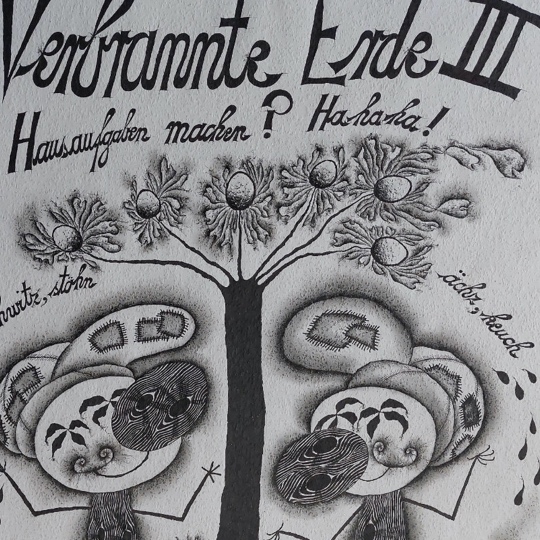 Verbrannte Erde III
Hausaufgaben machen? Ha-ha-ha!
stöhn
ächz, keuch